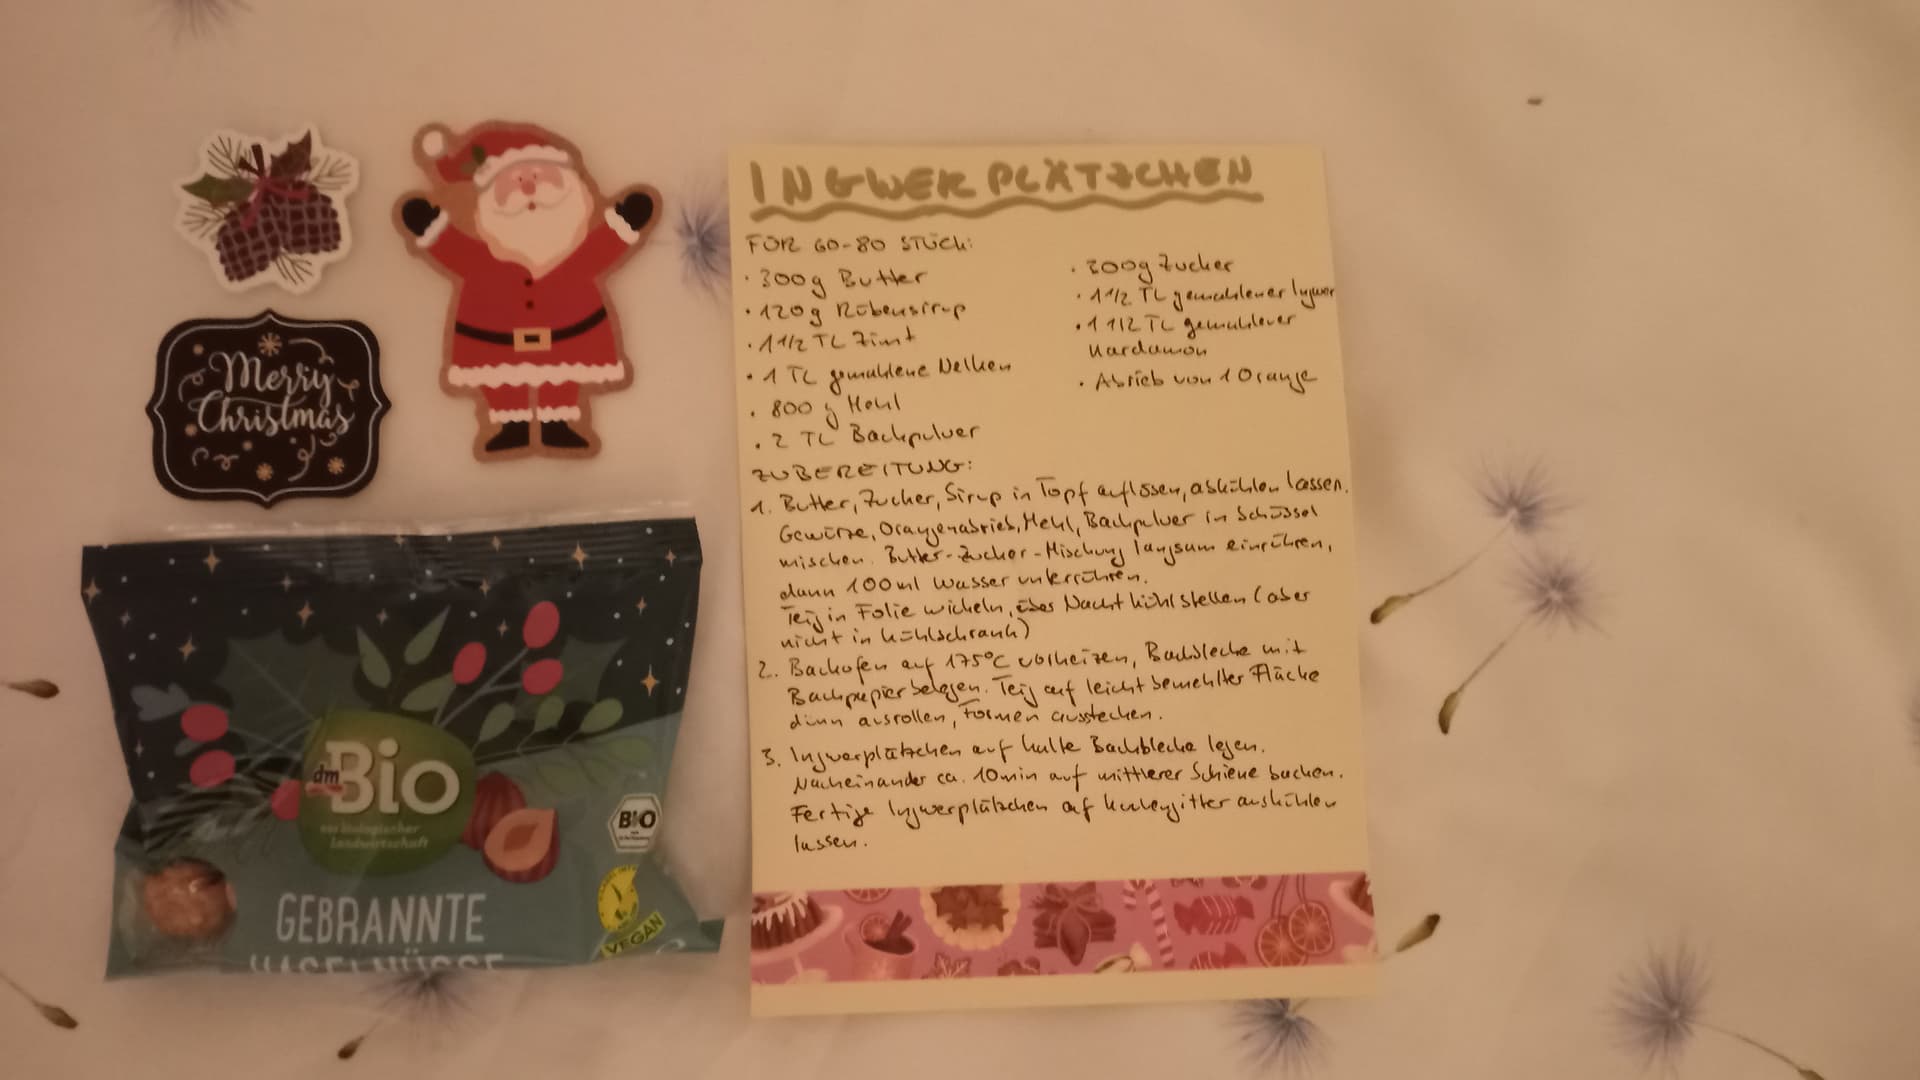 Merry
Christmas
dm
Bio
aus biologischer
Landwirtschaft
BIO
GEBRANNTE
HASELNÜSSE
VEGAN
INGWERPLÄTZCHEN
FÜR 60-80 STÜCK:
· 300g Butter
· 120g Rübensirup
· 1 1/2 TL Zimt
· 1 TL gemahlene Nelken
· 800 g Mehl
· 2 TL Backpulver
· 300g Zucker
· 1 1/2 TL gemahlener Ingwer
· 1 1/2 TL gemahlener
Kardamon
· Abrieb von 1 Orange
ZUBEREITUNG:
1. Butter, Zucker, Sirup in Topf auflösen, abkühlen lassen.
Gewürze, Orangenabrieb, Mehl, Backpulver in Schüssel
mischen. Butter-Zucker-Mischung langsam einrühren,
dann 100ml Wasser unterrühren.
Teig in Folie wickeln, über Nacht kühl stellen (aber
nicht in Kühlschrank)
2. Backofen auf 175°C vorheizen, Backbleche mit
Backpapier belegen. Teig auf leicht bemehlter Fläche
dünn ausrollen, Formen ausstechen.
3. Ingwerplätzchen auf kalte Backbleche legen.
Nacheinander ca. 10min auf mittlerer Schiene backen.
Fertige Ingwerplätzchen auf Kuchengitter auskühlen
lassen.